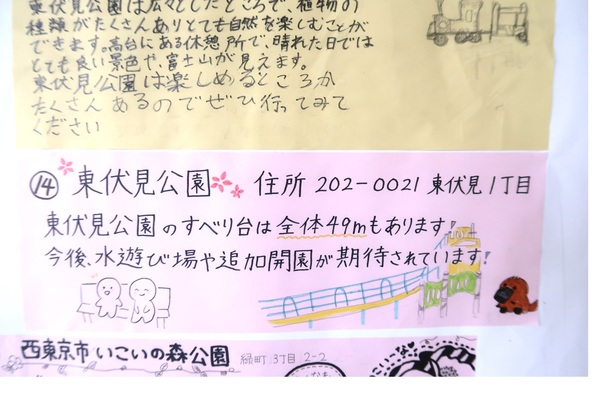 東伏見公園は広々としたところで、植物の
種類がたくさんありとても自然を楽しむことが
できます。高台にある休憩所で、晴れた日では
とても良い景色や、富士山が見えます。
東伏見公園は楽しめるところが
たくさんあるのでぜひ行ってみて
ください
⑭ 東伏見公園 住所 202-0021 東伏見1丁目
東伏見公園のすべり台は全体49mもあります!
今後、水遊び場や追加開園が期待されています!
西東京市いこいの森公園 緑町3丁目2-2